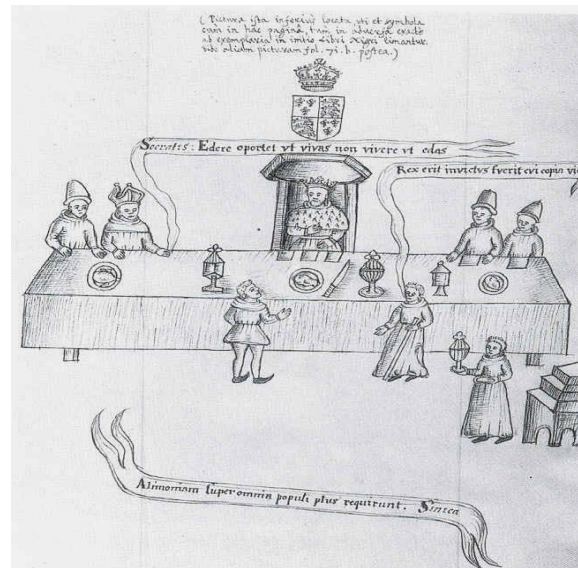 ( Pictura ista inferius locata, uti et symbola
cum in hac pagina, tum in adversa exacte
ad exemplaria in initio Libri Nigri limantur.
vide aliam picturam fol. 71. b. postea. )
Socratis: Edere oportet vt vivas non vivere vt edas
Rex erit invictus fverit cvi copia
Alimoniam super omnia populi plus requirunt. Sinica